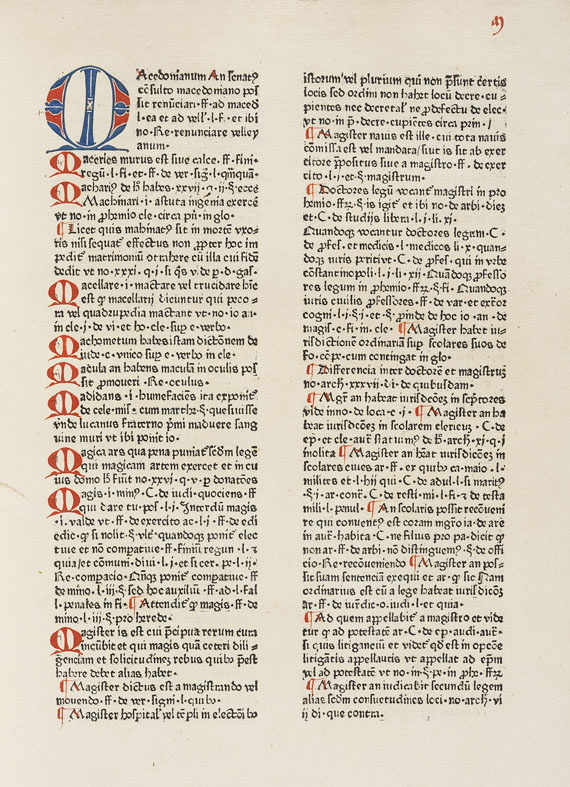 M
Macedonianum An senat9
cõsulto macedoniano pos
sit renũciari · ff · ad maced
l · ea et ad vell' · l · fi · et ibi
no · Re · renunciare velley
anum ·
Maceries murus est siue calce · ff · fini ·
regũ · l · fi · et · ff · de ver · sig · l ·
Macharij de
Machinari · i · astuta ingenia exercere
vt no · in phemio cle · circa pñ · in glo ·
¶ Licet quis mahinat9 sit in mortẽ vxo-
ris nisi sequat effectus non ppter hoc im
pedit matrimoniũ
dedit vt no · xxxi · q · i · si q̃s v · de p · d · gas ·
Macellare · i · mactare vel trucidare hĩc
est macellarij dicuntur qui peco ·
ra vel quadrupedia mactant vt · no · io · an ·
in cle · j · de vi · et ho · cle · sup e · verbo ·
Machometum habes istam dictõnem de
iude · c · vnico sup e · verbo in cle ·
Madula an habens maculã in oculis pos
sit pmoueri · Re · oculus ·
Madidans · i · humefaciẽs ita exponit
de cele · mis · cum marthe · § · quesiuisse
vnde lucanus fraterno pmi maduere sang
uine muri vt ibi ponit io ·
Magica ars qua pena puniat sc̃dm legẽ
qui magicam artem exercet et in cu
ius domo
Magis · i · min9 · C · de iudi · quociens · ff
qui dare tu · pos · l · j · Interdũ magis
· i · valde vt · ff · de exercito ac · l · j · ff · de edi
edic · q · si nolit · § · quandoq ponit elec
tiue et nõ compatiue · ff · finiũ regun · l · 2
quia · et cõmuni · diui · l · j · et si cer · pe · l · ij ·
Re · compacio · ponit compatiue · ff
de mino · l · iij · § · sed hoc auxiliũ · ff · ad l · fal
l · penales in fi · ¶ Attendit magis · ff · de
mino · l · iij · § · pro herede ·
Magister is est cui pcipua rerum cura
incũbit et qui magis quã ceteri dili =
genciam et solicitudinez rebus quibus pest
habere debet alias habet ·
¶ Magister dictus est a magistrando vel
mouendo · ff · de ver · signi · l · quibus
¶ Magister hospital' vel tẽpli in electõi
istorum vel plurium qui non psunt certis
locis sed ordini non habet locũ decre · cu ·
pientes nec decretal' ne p defectu de elec ·
vt no · in p · decre · cupientes circa prin · i
¶ Magister nauis est ille · cui tota nauis
cõmissa est vel mandata · siue is sit ab exer
citore ppositus siue a magistro · ff · de exer
cito · l · i · et · § · magistrum ·
¶ Doctores legũ vocant magistri in pro
hemio · et ibi no · de arbi · diez
et · C · de studijs liber · l · j · li · xi ·
Quandoq vocantur doctores legum · C ·
de pfes · et medicis · l · medicos li · x · quan-
doq iuris peritiue · C · de pfes · qui in vrbe
cõstantinopoli · l · j · li · xii · Quandoq pfesso
res legum in phemio · § · fi · Quandoq
iuris ciuilis pfessores · ff · de var · et extror
cogni · l · j · § · i · et · § · pinde de hoc io · an · de
magis · c · fi · in · cle · ¶ Magister habet iu ·
risdictionẽ ordinariã sup scolares suos de
Fo · cõpe · cum contingat in glo ·
¶ Differencia inter doctorẽ et magistruz
no · arch · xxxvii · di · de quibusdam ·
¶ Mgr an habeat iurisdicõez in scptores
vide inno · de loca · c · i · ¶ Magister an ha
beat iurisdicõez in scolarem clericuz · C · de
ep · et cle · aut statuimus de h · arch · xi · q · i
inolita ¶ Magister an hẽat iurisdicõez in
scolares ciues ar · ff · ex quibus ca · maio · l ·
milites · et l · hij qui · C · de adul · l · si maritus
§ · j · ar · contr · C · de resti · mi · l · fi · 2 de testa
mili · l · penul · ¶ An scolaris possit recõueni
re qui conuentus est coram mgro ia · de are
in aut · habita · C · ne filius pro pa · dicit
non ar · ff · de arbi · nõ distinguem9 · § · de offi
cio · Re · recõueniendo ¶ Magister an pos-
sit suam sentenciã exequi et ar · sic Nam
ordinarius est cũ a lege habeat iurisdicõz
ar · ff · de iur dic · o · iudi · l · et quia ·
¶ Ad quem appellabit a magistro et vide
tur ad potestatẽ ar · C · de ep · audi · aut ·
si quis litiganciũ et videt qd est in opcõe
litigãtis appellautis vt appellat ad epm
vel ad potestatẽ vt no · in · § · pe · in phe · ff
¶ Magister an iudicabit secundũ legem
alias scdm consuetudines loci · no · arch · vi
ii di · que contra ·